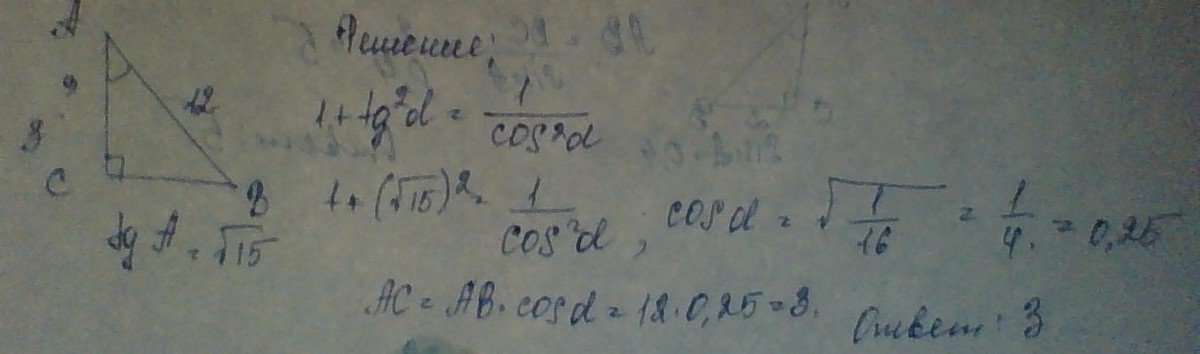 A
?
12
3
C
B
tg A = √15
Решение:
1 + tg²α = 1/cos²α
1 + (√15)² = 1/cos²α ; cosα = √(1/16) = 1/4 = 0,25
AC = AB · cosα = 12 · 0,25 = 3.
Ответ: 3